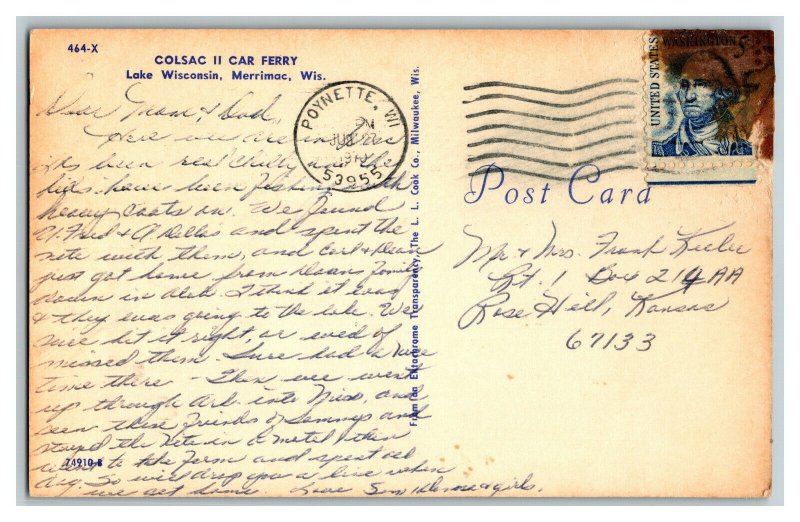 464-X
COLSAC II CAR FERRY
Lake Wisconsin, Merrimac, Wis.
Dear Mom & Dad,
Here we are in Wis
its been real chilly and the
kids have been fishing with
heavy coats on. We found
U. Fred & A. Dellas and spent the
nite with them, and Carl & Dean
just got home from Doans Family
down in Alab. I think it was
& they was going to the lake. We
sure hit it right, or we'd of
missed them. Sure had a nice
time there - Then we went
up through Ark. into Miss, and
seen these friends of Sonnys and
stayed the nite in a motel then
went to the Farm and spent all
day. So will drop you a line when
we get home. Love Son &
girls.
74910-B
From an Ektachrome Transparency, The L. L. Cook Co., Milwaukee, Wis.
POYNETTE, WI
PM
53955
UNITED STATES
WASHINGTON 5¢
Post Card
Mr & Mrs. Frank Keeler
Rt. 1 Box 214AA
Rose Hill, Kansas
67133